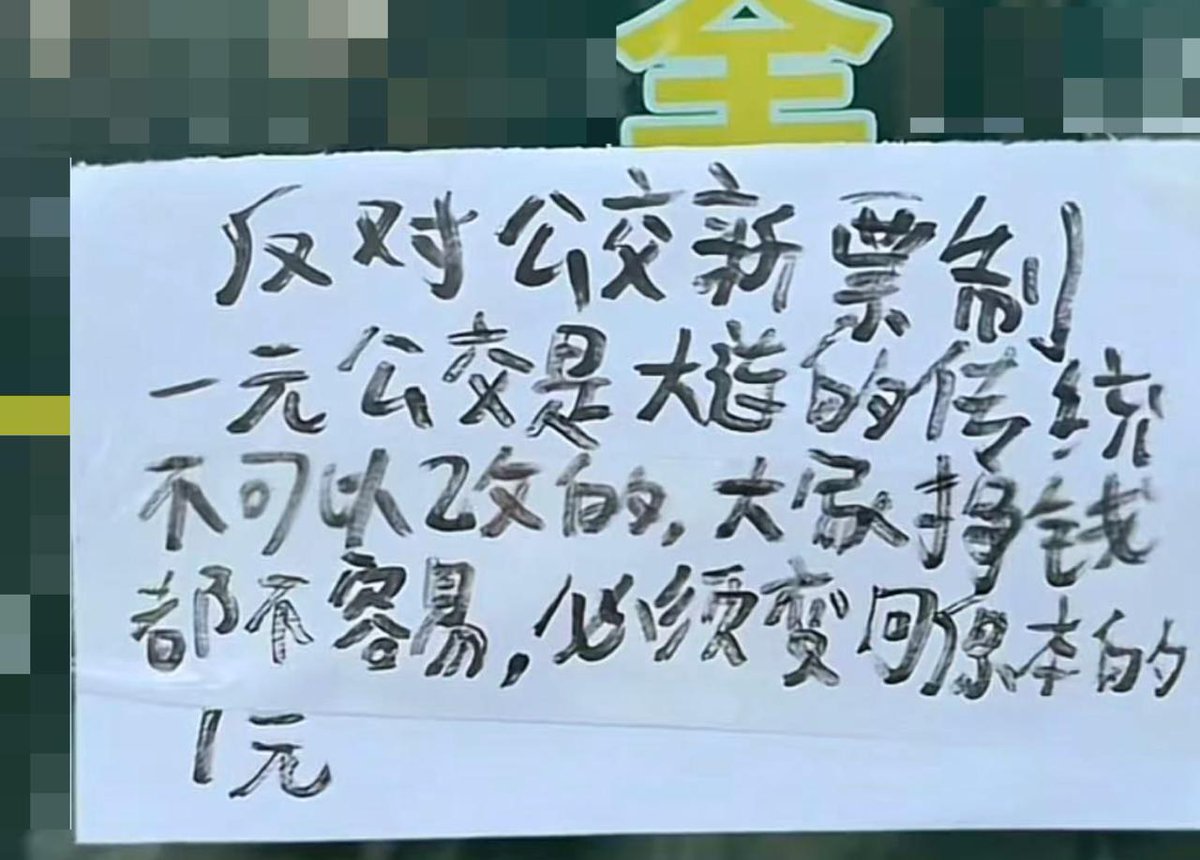 全
反对公交新票制
一元公交是大道的传统
不可以改的,大家挣钱
都不容易,必须变回原本的
1元